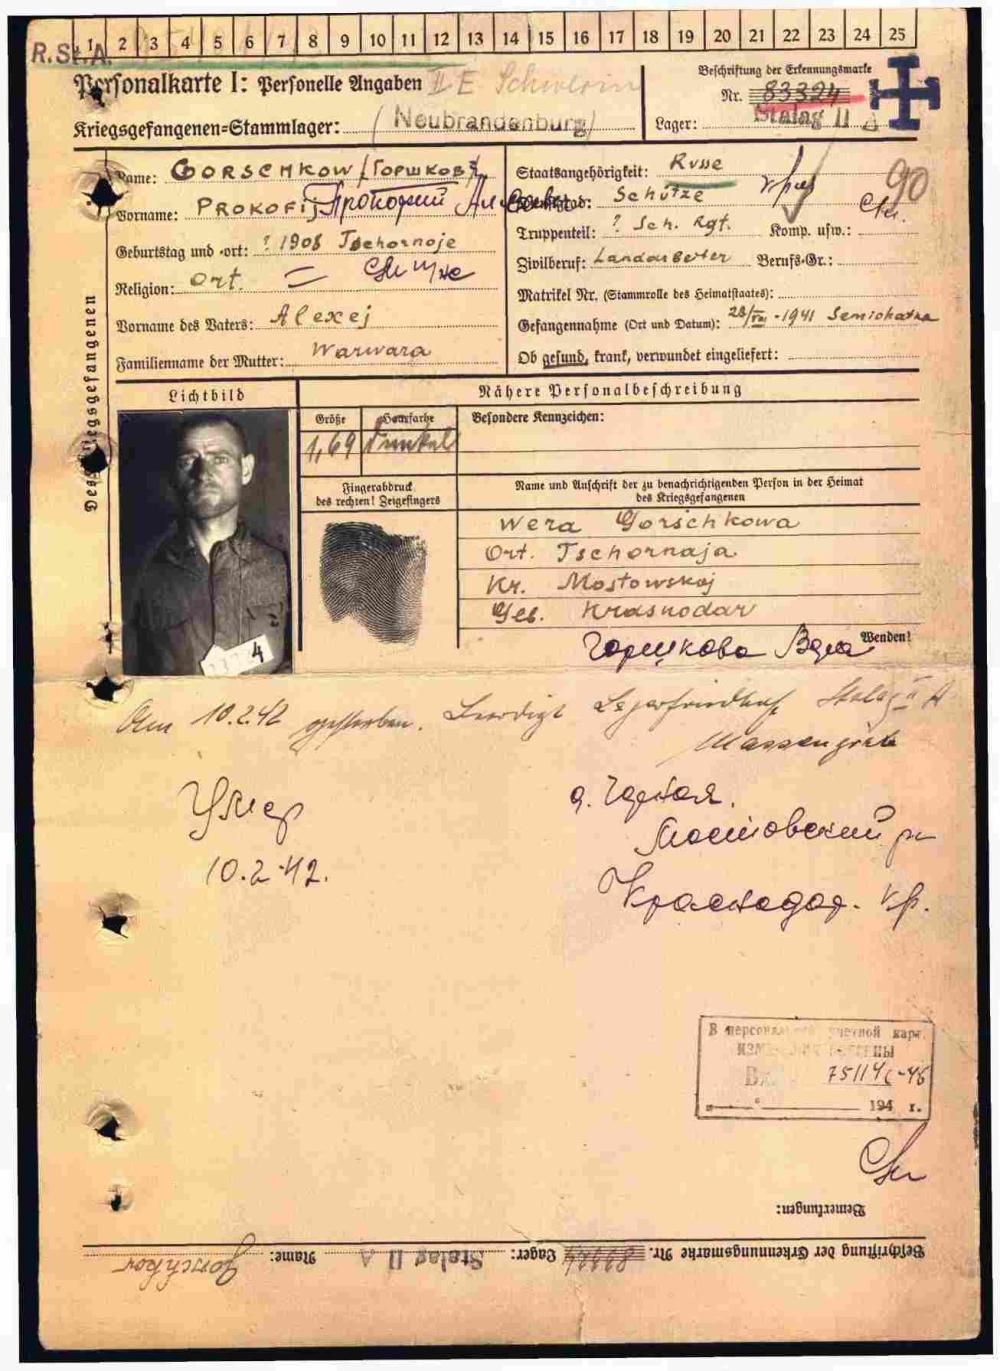 R.St.A.
1 2 3 4 5 6 7 8 9 10 11 12 13 14 15 16 17 18 19 20 21 22 23 24 25
Personalkarte I: Personelle Angaben II E Schwerin
Kriegsgefangenen=Stammlager: (Neubrandenburg)
Beschriftung der Erkennungsmarke
Nr. 83324
Lager: Stalag II A
Des Kriegsgefangenen
Name: GORSCHKOW /Горшков/
Vorname: PROKOFIJ Прокофий
Geburtstag und =ort: ? 1908 Tschornoje
Religion: Ort. =
Vorname des Vaters: Alexej
Familienname der Mutter: Warwara
Staatsangehörigkeit: Russe
Schütze
Truppenteil: ? Sch. Rgt. Komp. usw.:
Zivilberuf: Landarbeiter Berufs=Gr.:
Matrikel Nr. (Stammrolle des Heimatstaates):
Gefangennahme (Ort und Datum): 28/VIII - 1941
Ob gesund, krank, verwundet eingeliefert:
90
Lichtbild
Nähere Personalbeschreibung
Größe
1,69
Haarfarbe
Dunkel
Besondere Kennzeichen:
Fingerabdruck
des rechten! Zeigefingers
Name und Anschrift der zu benachrichtigenden Person in der Heimat
des Kriegsgefangenen
Wera Gorschkowa
Ort. Tschornaja
Kr. Mostowskoj
Geb. Krasnodar
Горшкова Вера
Wenden!
4
Am 10.2.42 gestorben. Beerdigt Lagerfriedhof Stalag II A
Massengrab
Умер
10.2.42.
Мостовский
Краснодар. кр.
В персональной учетной карт.
ИЗМЕНЕНИЯ ВНЕСЕНЫ
Вх. 75114с-46
194 г.
Bemerkungen:
Beschriftung der Erkennungsmarke Nr. 83324 Lager: Stalag II A Name: Gorschkow